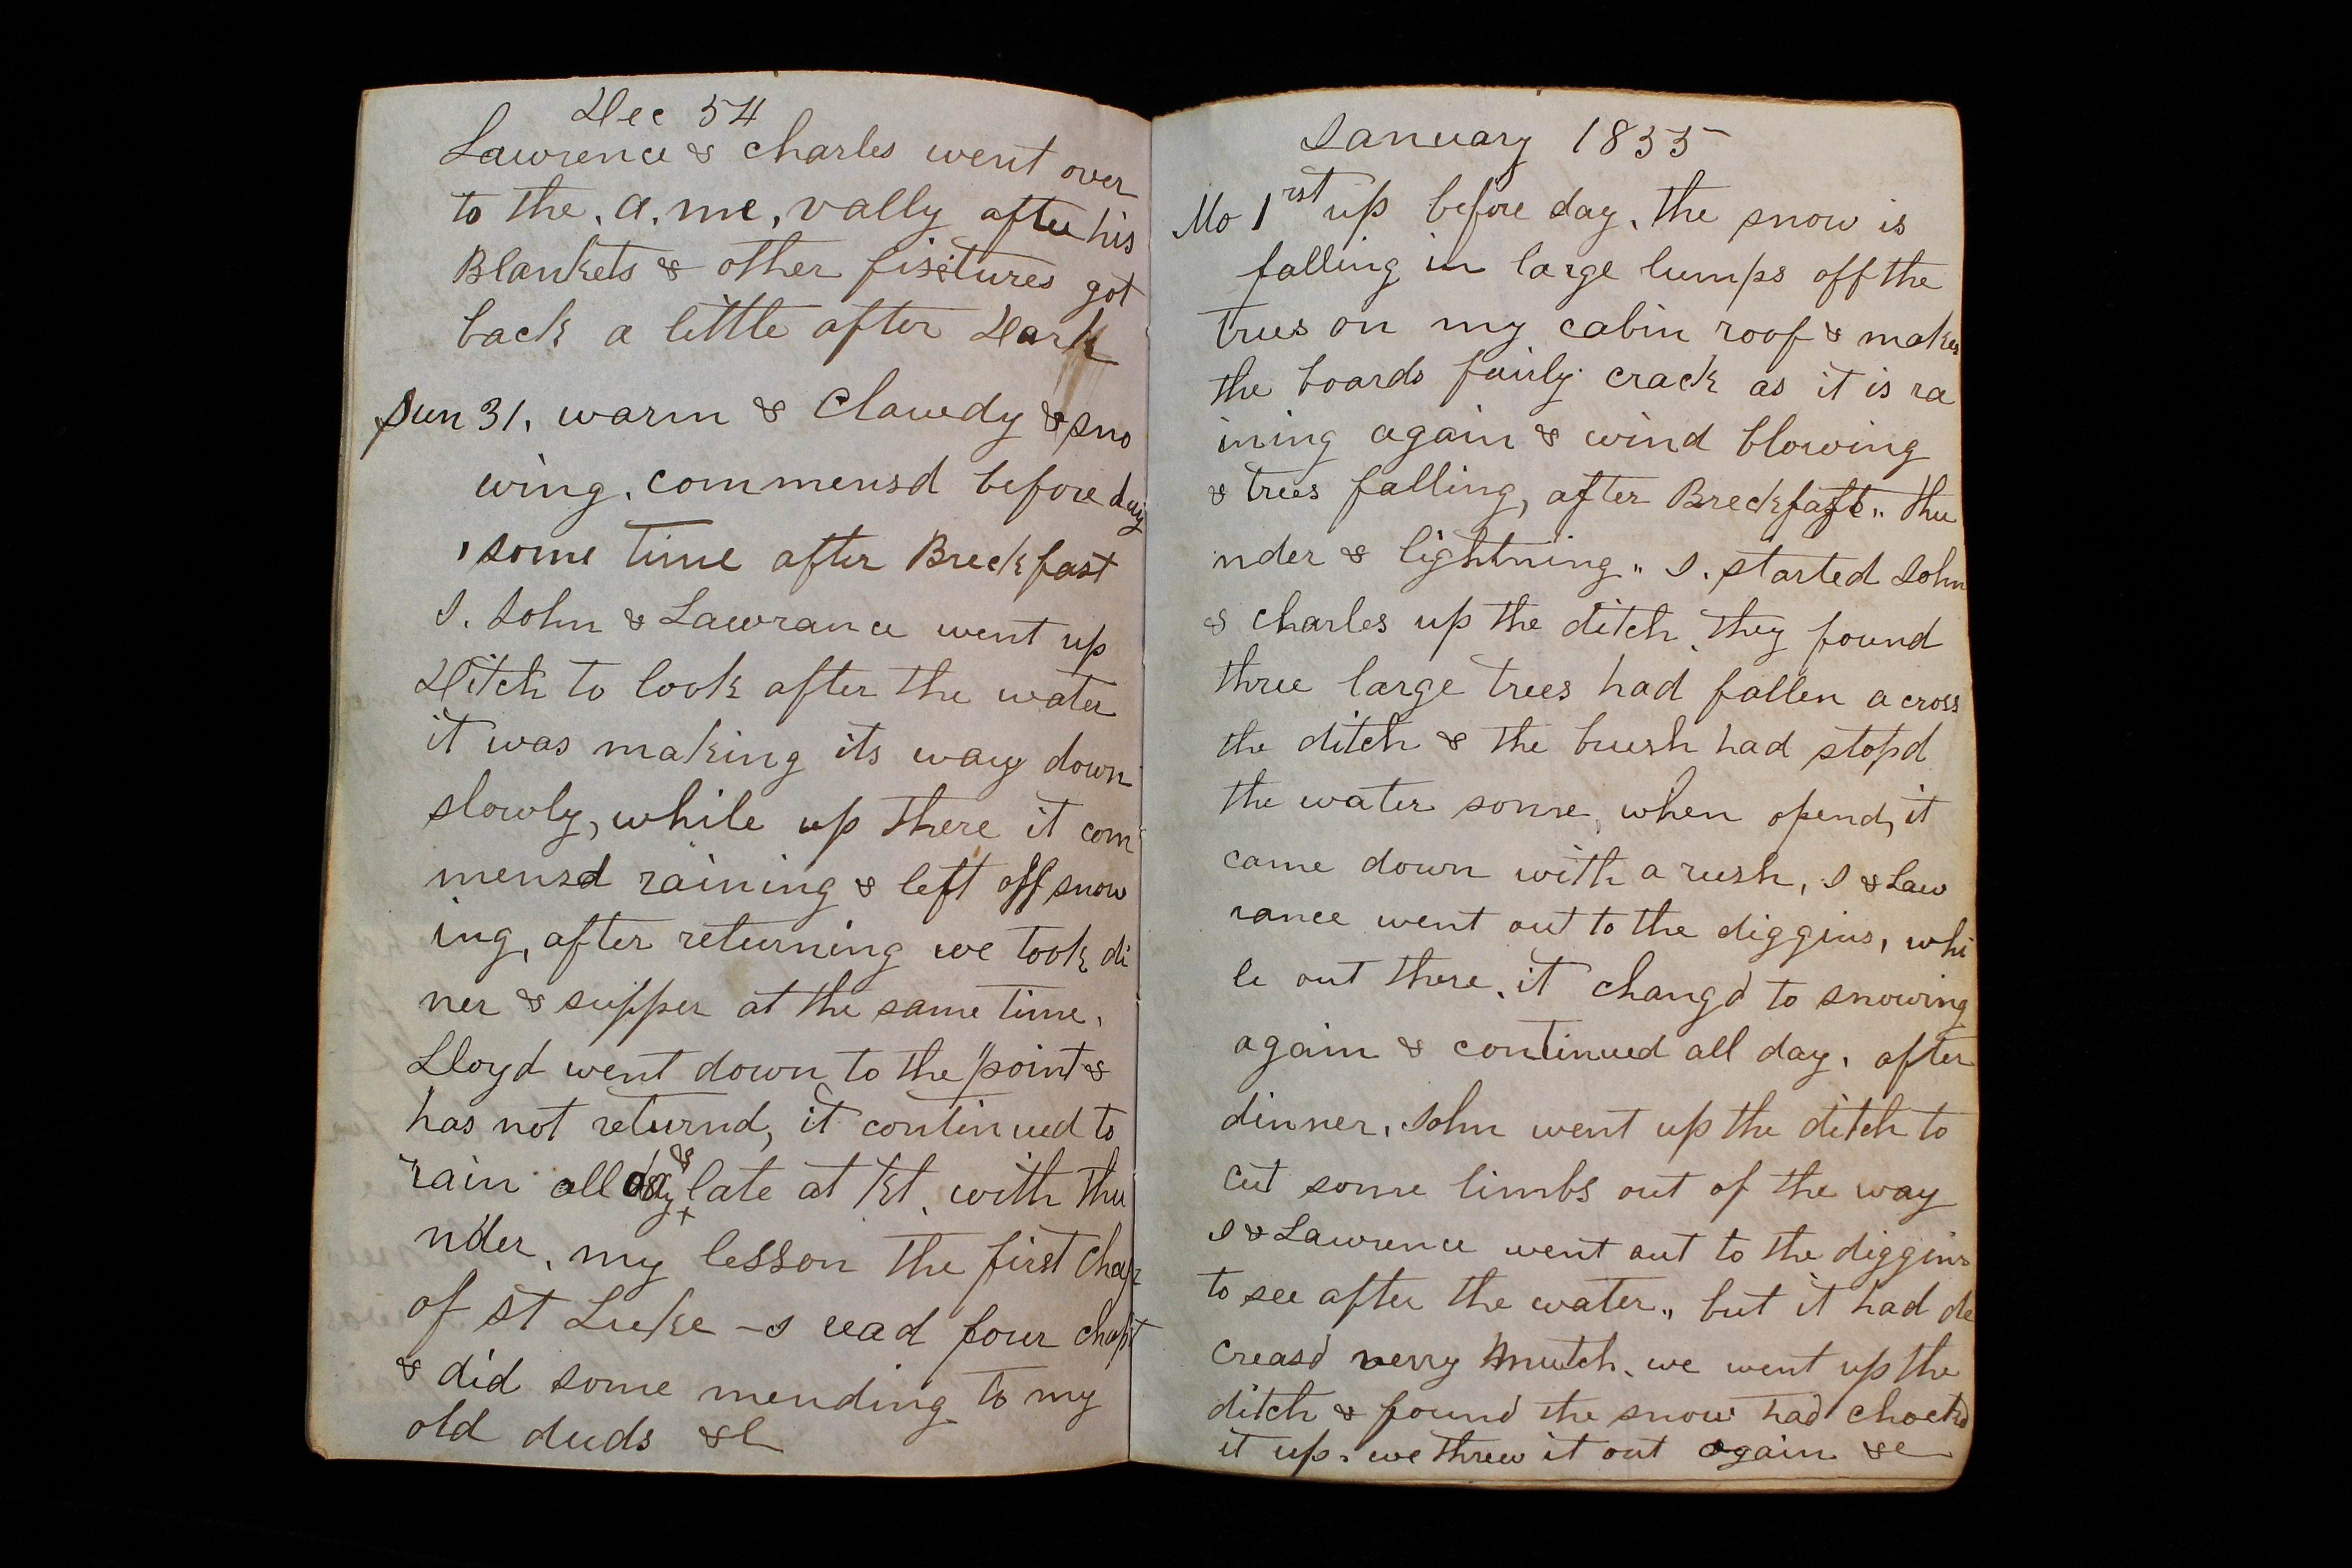 Dec 54
Lawrence & Charles went over
to the, a, me, vally after his
Blankets & other fixtures got
back a little after Dark
Sun 31, warm & Clowdy & sno
wing, commensd before day
, some time after Breckfast
I. John & Lawrance went up
Ditch to look after the water
it was making its way down
slowly, while up there it com
mensd raining & left off snow
ing, after returning we took di
ner & supper at the same time,
Lloyd went down to the point &
has not returnd, it continued to
rain all day & late at Kt, with thu
nder, my lesson the first Chap
of St Luke – I read four chapt
& did some mending to my
old duds &c
January 1855
Mo 1rst up before day, the snow is
falling in large lumps off the
trees on my cabin roof & makes
the boards fairly crack as it is ra
ining again & wind blowing
& trees falling, after Breckfast „ thu
nder & lightning „ I. started John
& Charles up the ditch, they found
three large trees had fallen a cross
the ditch & the brush had stopd
the water some, when opend, it
came down with a rush, I & Law
rance went out to the diggins, whi
le out there, it changd to snowing
again & continued all day, after
dinner, John went up the ditch to
cut some limbs out of the way
I & Lawrence went out to the diggins
to see after the water „ but it had de
creasd verry mutch, we went up the
ditch & found the snow had chockd
it up, we threw it out again &c